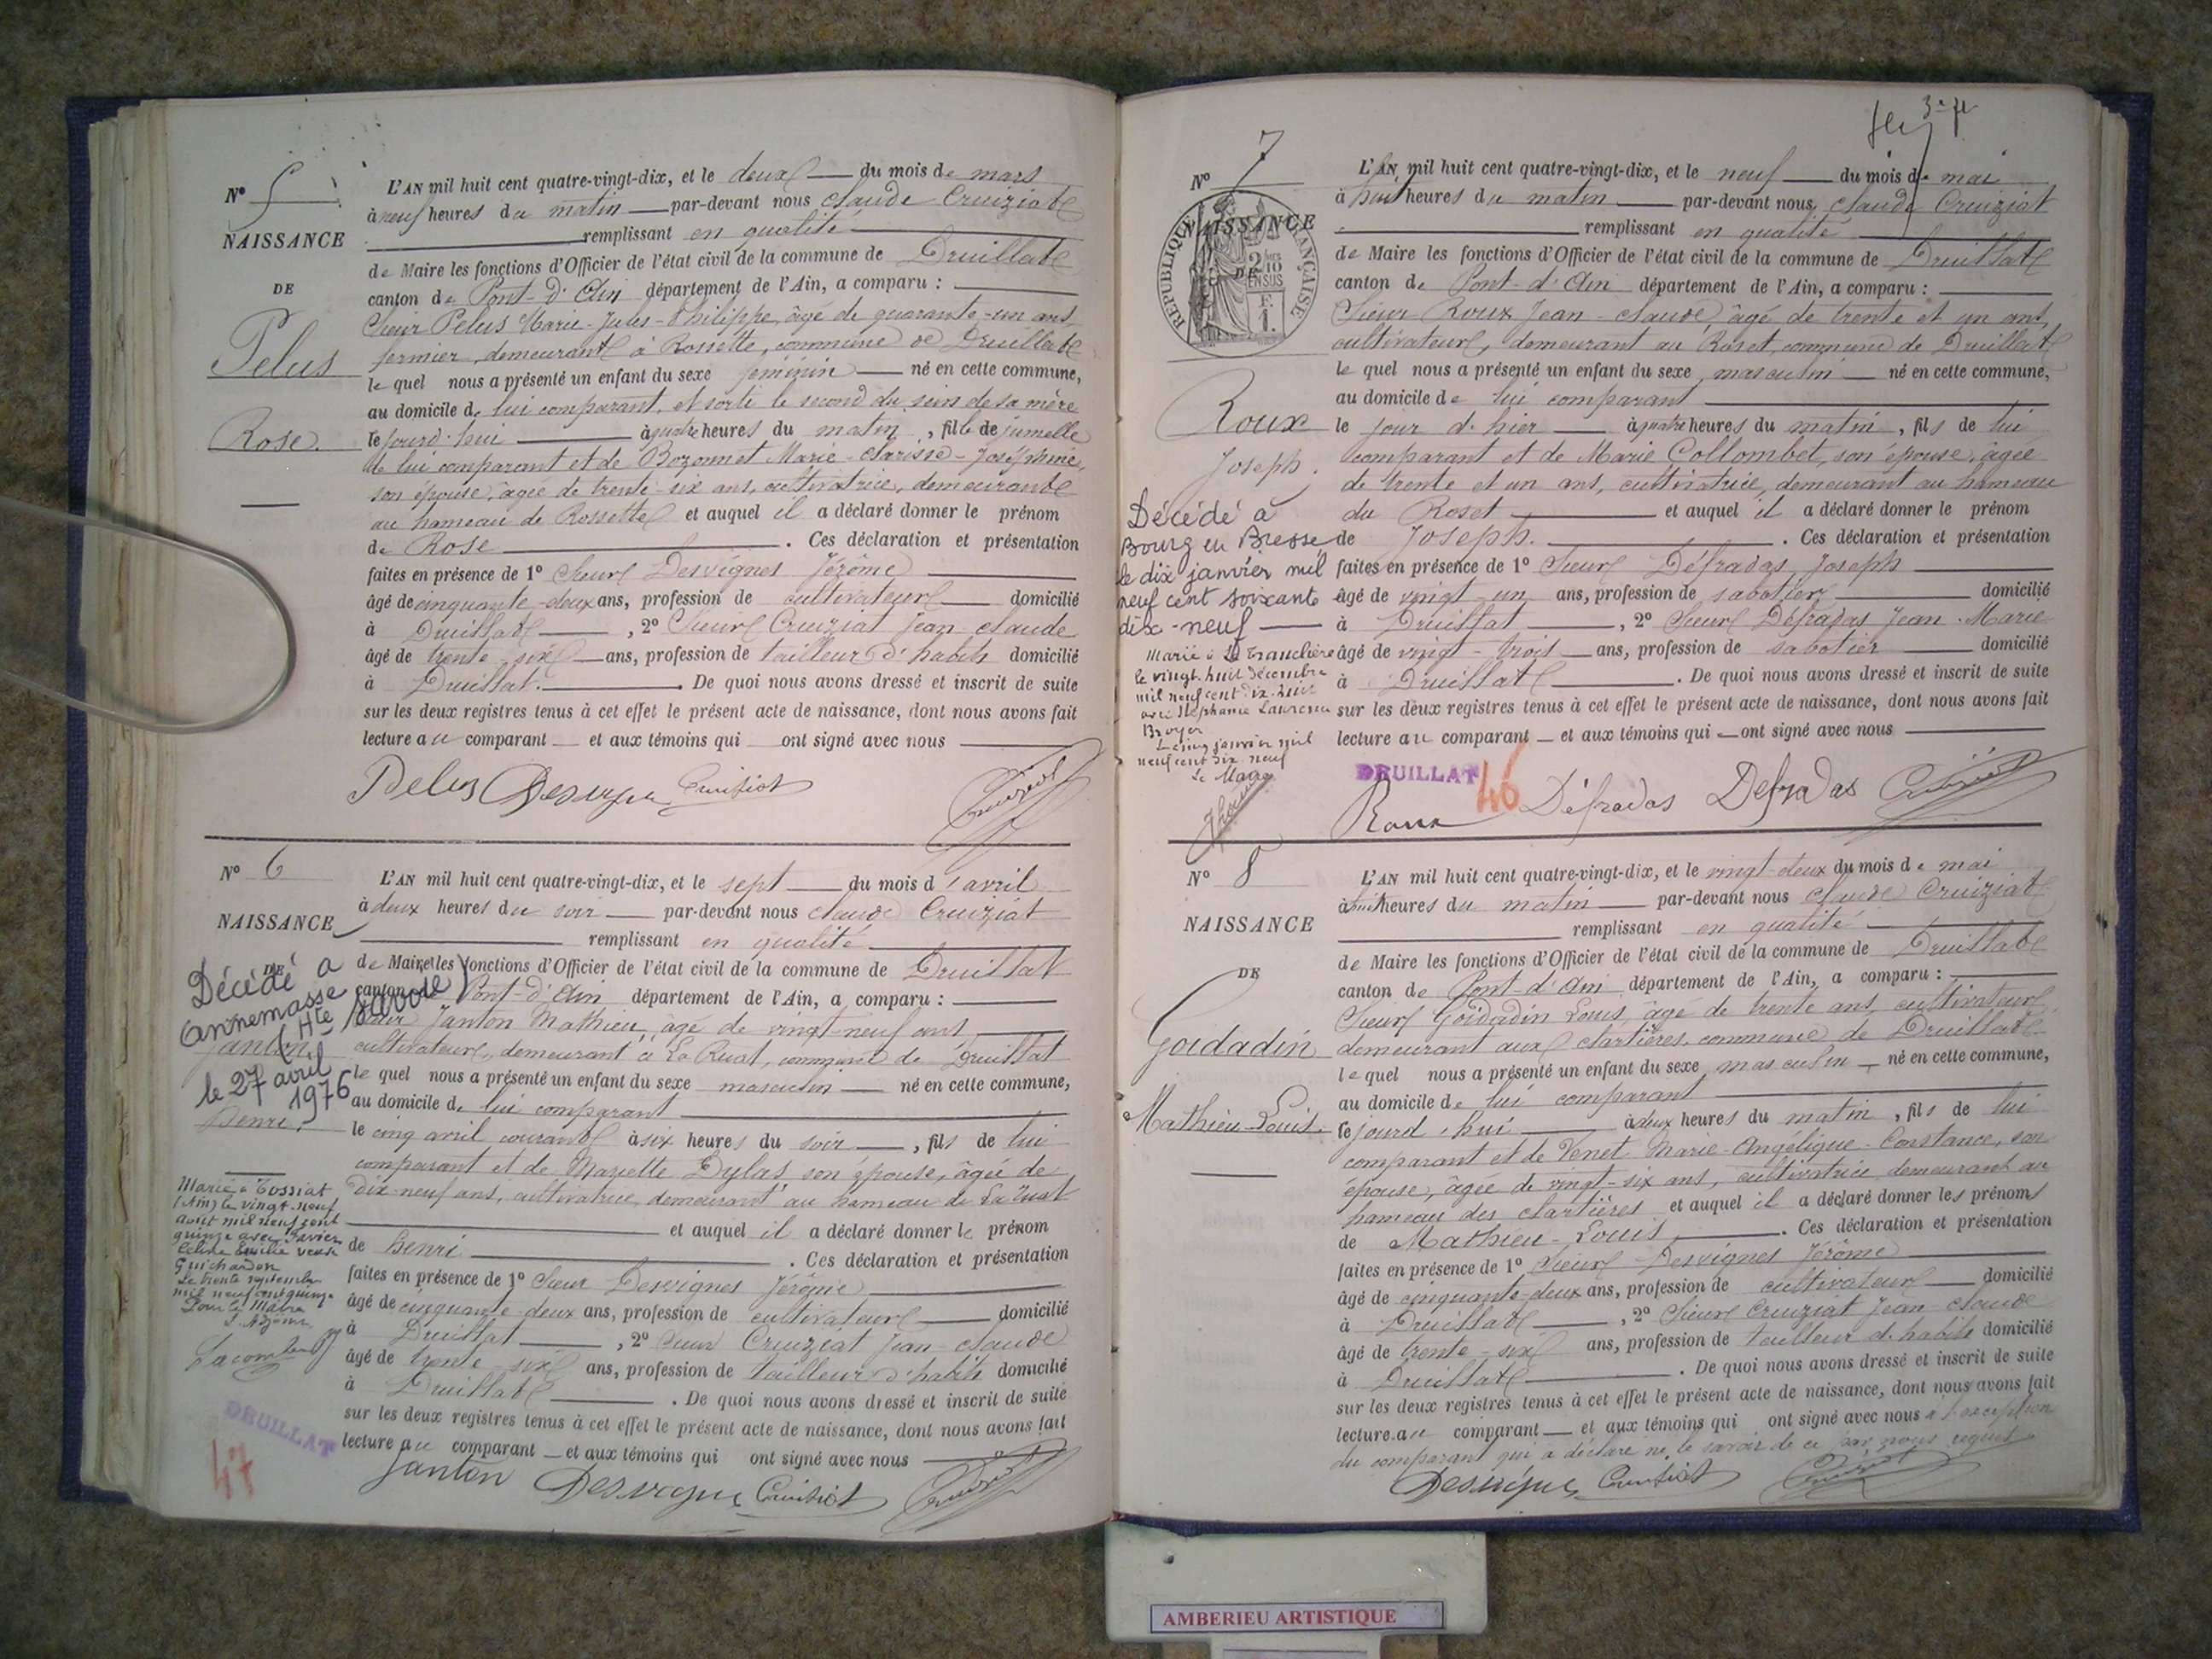 N° 5
NAISSANCE
DE
Pelus
Rose.
L'AN mil huit cent quatre-vingt-dix, et le deux du mois de mars
à neuf heures du matin par-devant nous Claude Cruiziat
remplissant en qualité
de Maire les fonctions d'Officier de l'état civil de la commune de Druillat
canton de Pont-d'Ain département de l'Ain, a comparu :
Sieur Pelus Marie-Jules-Philippe, âgé de quarante-un ans,
fermier, demeurant à Rossette, commune de Druillat
le quel nous a présenté un enfant du sexe féminin né en cette commune,
au domicile de lui comparant, et sorti le second du sein de sa mère
le jourd'hui à quatre heures du matin, fille de jumelle
de lui comparant et de Bozonnet Marie-Clarisse-Joséphine,
son épouse, âgée de trente-six ans, cultivatrice, demeurant
au hameau de Rossette et auquel il a déclaré donner le prénom
de Rose. Ces déclaration et présentation
faites en présence de 1° Sieur Desvignes Jérôme
âgé de cinquante-deux ans, profession de cultivateur domicilié
à Druillat, 2° Sieur Cruiziat Jean-Claude
âgé de trente-six ans, profession de tailleur d'habits domicilié
à Druillat. De quoi nous avons dressé et inscrit de suite
sur les deux registres tenus à cet effet le présent acte de naissance, dont nous avons fait
lecture au comparant et aux témoins qui ont signé avec nous
Pelus Desvignes Cruiziat Cruiziat
N° 6
NAISSANCE
DE
Janton
Henri.
Décédé à
Annemasse
(Hte Savoie)
le 27 avril
1976
Marié à Tossiat
(Ain) le vingt-neuf
août mil neuf cent
quinze avec Javier
Céline Emilie veuve
Guichardon
Le trente septembre
mil neuf cent quinze
Pour le Maire
L'Adjoint
DRUILLAT
47
L'AN mil huit cent quatre-vingt-dix, et le sept du mois d'avril
à deux heures du soir par-devant nous Claude Cruiziat
remplissant en qualité
de Maire les fonctions d'Officier de l'état civil de la commune de Druillat
canton de Pont-d'Ain département de l'Ain, a comparu :
Sieur Janton Mathieu, âgé de vingt-neuf ans,
cultivateur, demeurant à La Ruat, commune de Druillat
le quel nous a présenté un enfant du sexe masculin né en cette commune,
au domicile de lui comparant
le cinq avril courant à six heures du soir, fils de lui
comparant et de Mariette Dylas son épouse, âgée de
dix-neuf ans, cultivatrice, demeurant au hameau de La Ruat
et auquel il a déclaré donner le prénom
de henri. Ces déclaration et présentation
faites en présence de 1° Sieur Desvignes Jérôme
âgé de cinquante-deux ans, profession de cultivateur domicilié
à Druillat, 2° Sieur Cruiziat Jean-Claude
âgé de trente-six ans, profession de tailleur d'habits domicilié
à Druillat. De quoi nous avons dressé et inscrit de suite
sur les deux registres tenus à cet effet le présent acte de naissance, dont nous avons fait
lecture au comparant et aux témoins qui ont signé avec nous
Janton Desvignes Cruiziat Cruiziat
N° 7
NAISSANCE
DE
RÉPUBLIQUE FRANÇAISE
2/10 EN SUS
F. 1.
Roux
Joseph.
Décédé à
Bourg en Bresse
le dix janvier mil
neuf cent soixante
dix-neuf
Marié à La Tranclière
le vingt-huit décembre
mil neuf cent dix-huit
avec Stéphanie Laurence
Broyer
Le cinq janvier mil
neuf cent dix neuf
Le Maire
L'AN mil huit cent quatre-vingt-dix, et le neuf du mois de mai
à huit heures du matin par-devant nous Claude Cruiziat
remplissant en qualité
de Maire les fonctions d'Officier de l'état civil de la commune de Druillat
canton de Pont-d'Ain département de l'Ain, a comparu :
Sieur Roux Jean-Claude, âgé de trente et un ans,
cultivateur, demeurant au Roset, commune de Druillat
le quel nous a présenté un enfant du sexe masculin né en cette commune,
au domicile de lui comparant
le jour d'hier à quatre heures du matin, fils de lui
comparant et de Marie Collombet, son épouse, âgée
de trente et un ans, cultivatrice, demeurant au hameau
du Roset et auquel il a déclaré donner le prénom
de Joseph. Ces déclaration et présentation
faites en présence de 1° Sieur Défradas Joseph
âgé de vingt-un ans, profession de sabotier domicilié
à Druillat, 2° Sieur Défradas Jean-Marie
âgé de vingt-trois ans, profession de sabotier domicilié
à Druillat. De quoi nous avons dressé et inscrit de suite
sur les deux registres tenus à cet effet le présent acte de naissance, dont nous avons fait
lecture au comparant et aux témoins qui ont signé avec nous
DRUILLAT 46
Roux Défradas Defradas Cruiziat
N° 8
NAISSANCE
DE
Goidadin
Mathieu-Louis.
L'AN mil huit cent quatre-vingt-dix, et le vingt-deux du mois de mai
à huit heures du matin par-devant nous Claude Cruiziat
remplissant en qualité
de Maire les fonctions d'Officier de l'état civil de la commune de Druillat
canton de Pont-d'Ain département de l'Ain, a comparu :
Sieur Goidadin Louis, âgé de trente ans, cultivateur,
demeurant aux Clartières, commune de Druillat
le quel nous a présenté un enfant du sexe masculin né en cette commune,
au domicile de lui comparant
le jourd'hui à deux heures du matin, fils de lui
comparant et de Venet Marie-Angélique-Constance, son
épouse, âgée de vingt-six ans, cultivatrice, demeurant au
hameau des Clartières et auquel il a déclaré donner les prénoms
de Mathieu-Louis. Ces déclaration et présentation
faites en présence de 1° Sieur Desvignes Jérôme
âgé de cinquante-deux ans, profession de cultivateur domicilié
à Druillat, 2° Sieur Cruiziat Jean-Claude
âgé de trente-six ans, profession de tailleur d'habits domicilié
à Druillat. De quoi nous avons dressé et inscrit de suite
sur les deux registres tenus à cet effet le présent acte de naissance, dont nous avons fait
lecture au comparant et aux témoins qui ont signé avec nous à l'exception
du comparant qui a déclaré ne le savoir de ce par nous requis
Desvignes Cruiziat Cruiziat
AMBERIEU ARTISTIQUE